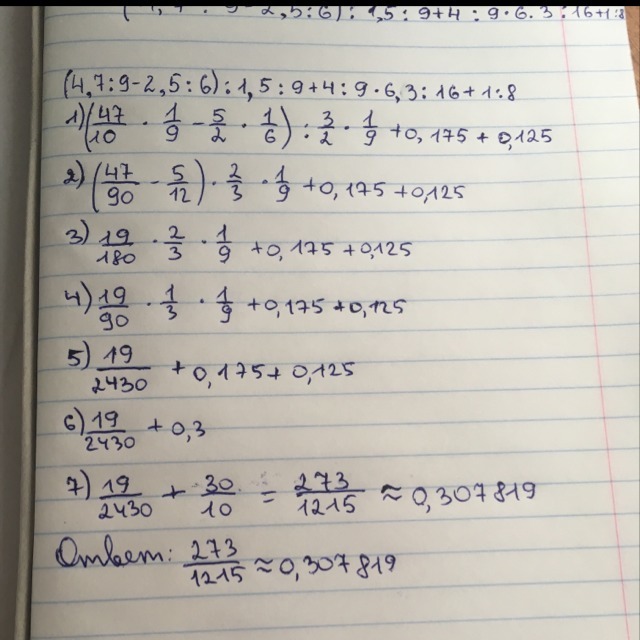 (4,7:9-2,5:6):1,5:9+4:9·6.3:16+1:8
(4,7:9-2,5:6):1,5:9+4:9·6,3:16+1:8
1)(47/10 · 1/9 - 5/2 · 1/6) : 3/2 · 1/9 +0,175+0,125
2)(47/90 - 5/12) · 2/3 · 1/9 +0,175+0,125
3) 19/180 · 2/3 · 1/9 +0,175+0,125
4) 19/90 · 1/3 · 1/9 +0,175+0,125
5) 19/2430 + 0,175+0,125
6) 19/2430 + 0,3
7) 19/2430 + 30/10 = 273/1215 ≈ 0,307819
Ответ: 273/1215 ≈ 0,307819